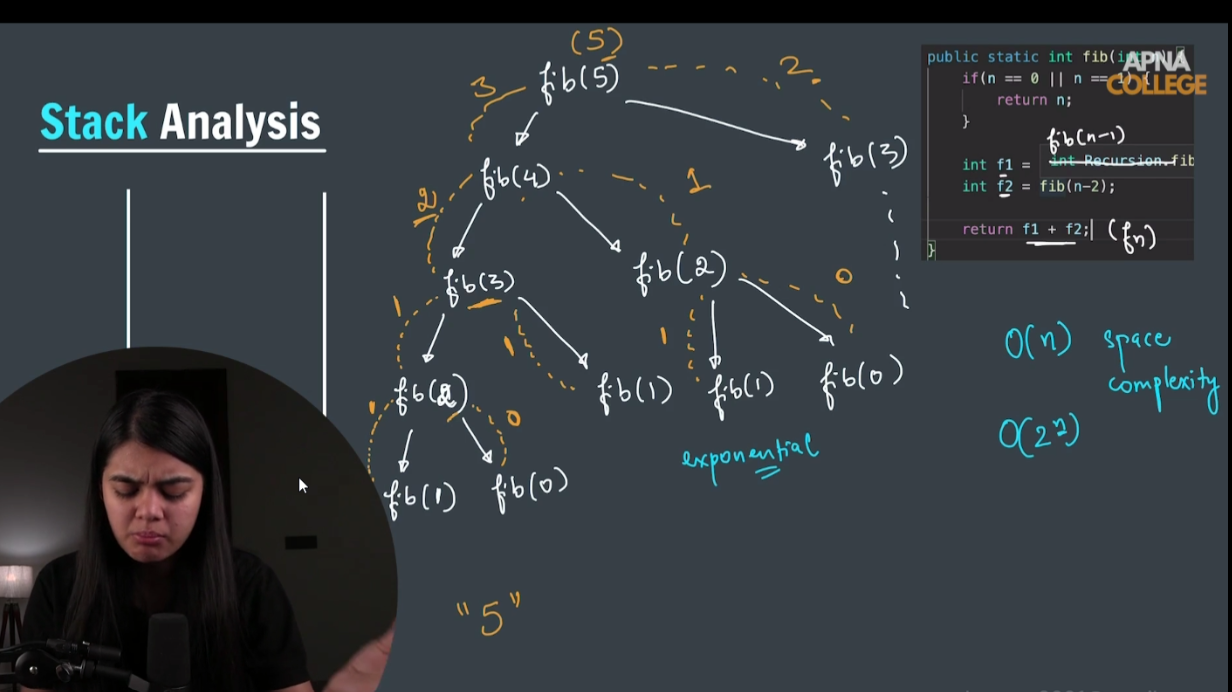 Stack Analysis
(5)
fib(5)
3
2
fib(4)
fib(3)
2
1
fib(3)
fib(2)
1
1
1
0
fib(2)
fib(1)
fib(1)
fib(0)
1
0
fib(1)
fib(0)
exponential
"5"
public static int fib(int
if(n == 0 || n == 1) {
return n;
}
fib(n-1)
int f1 = int Recursion.fib
int f2 = fib(n-2);
return f1 + f2; (fn)
}
APNA
COLLEGE
O(n) space
complexity
O(2^n)